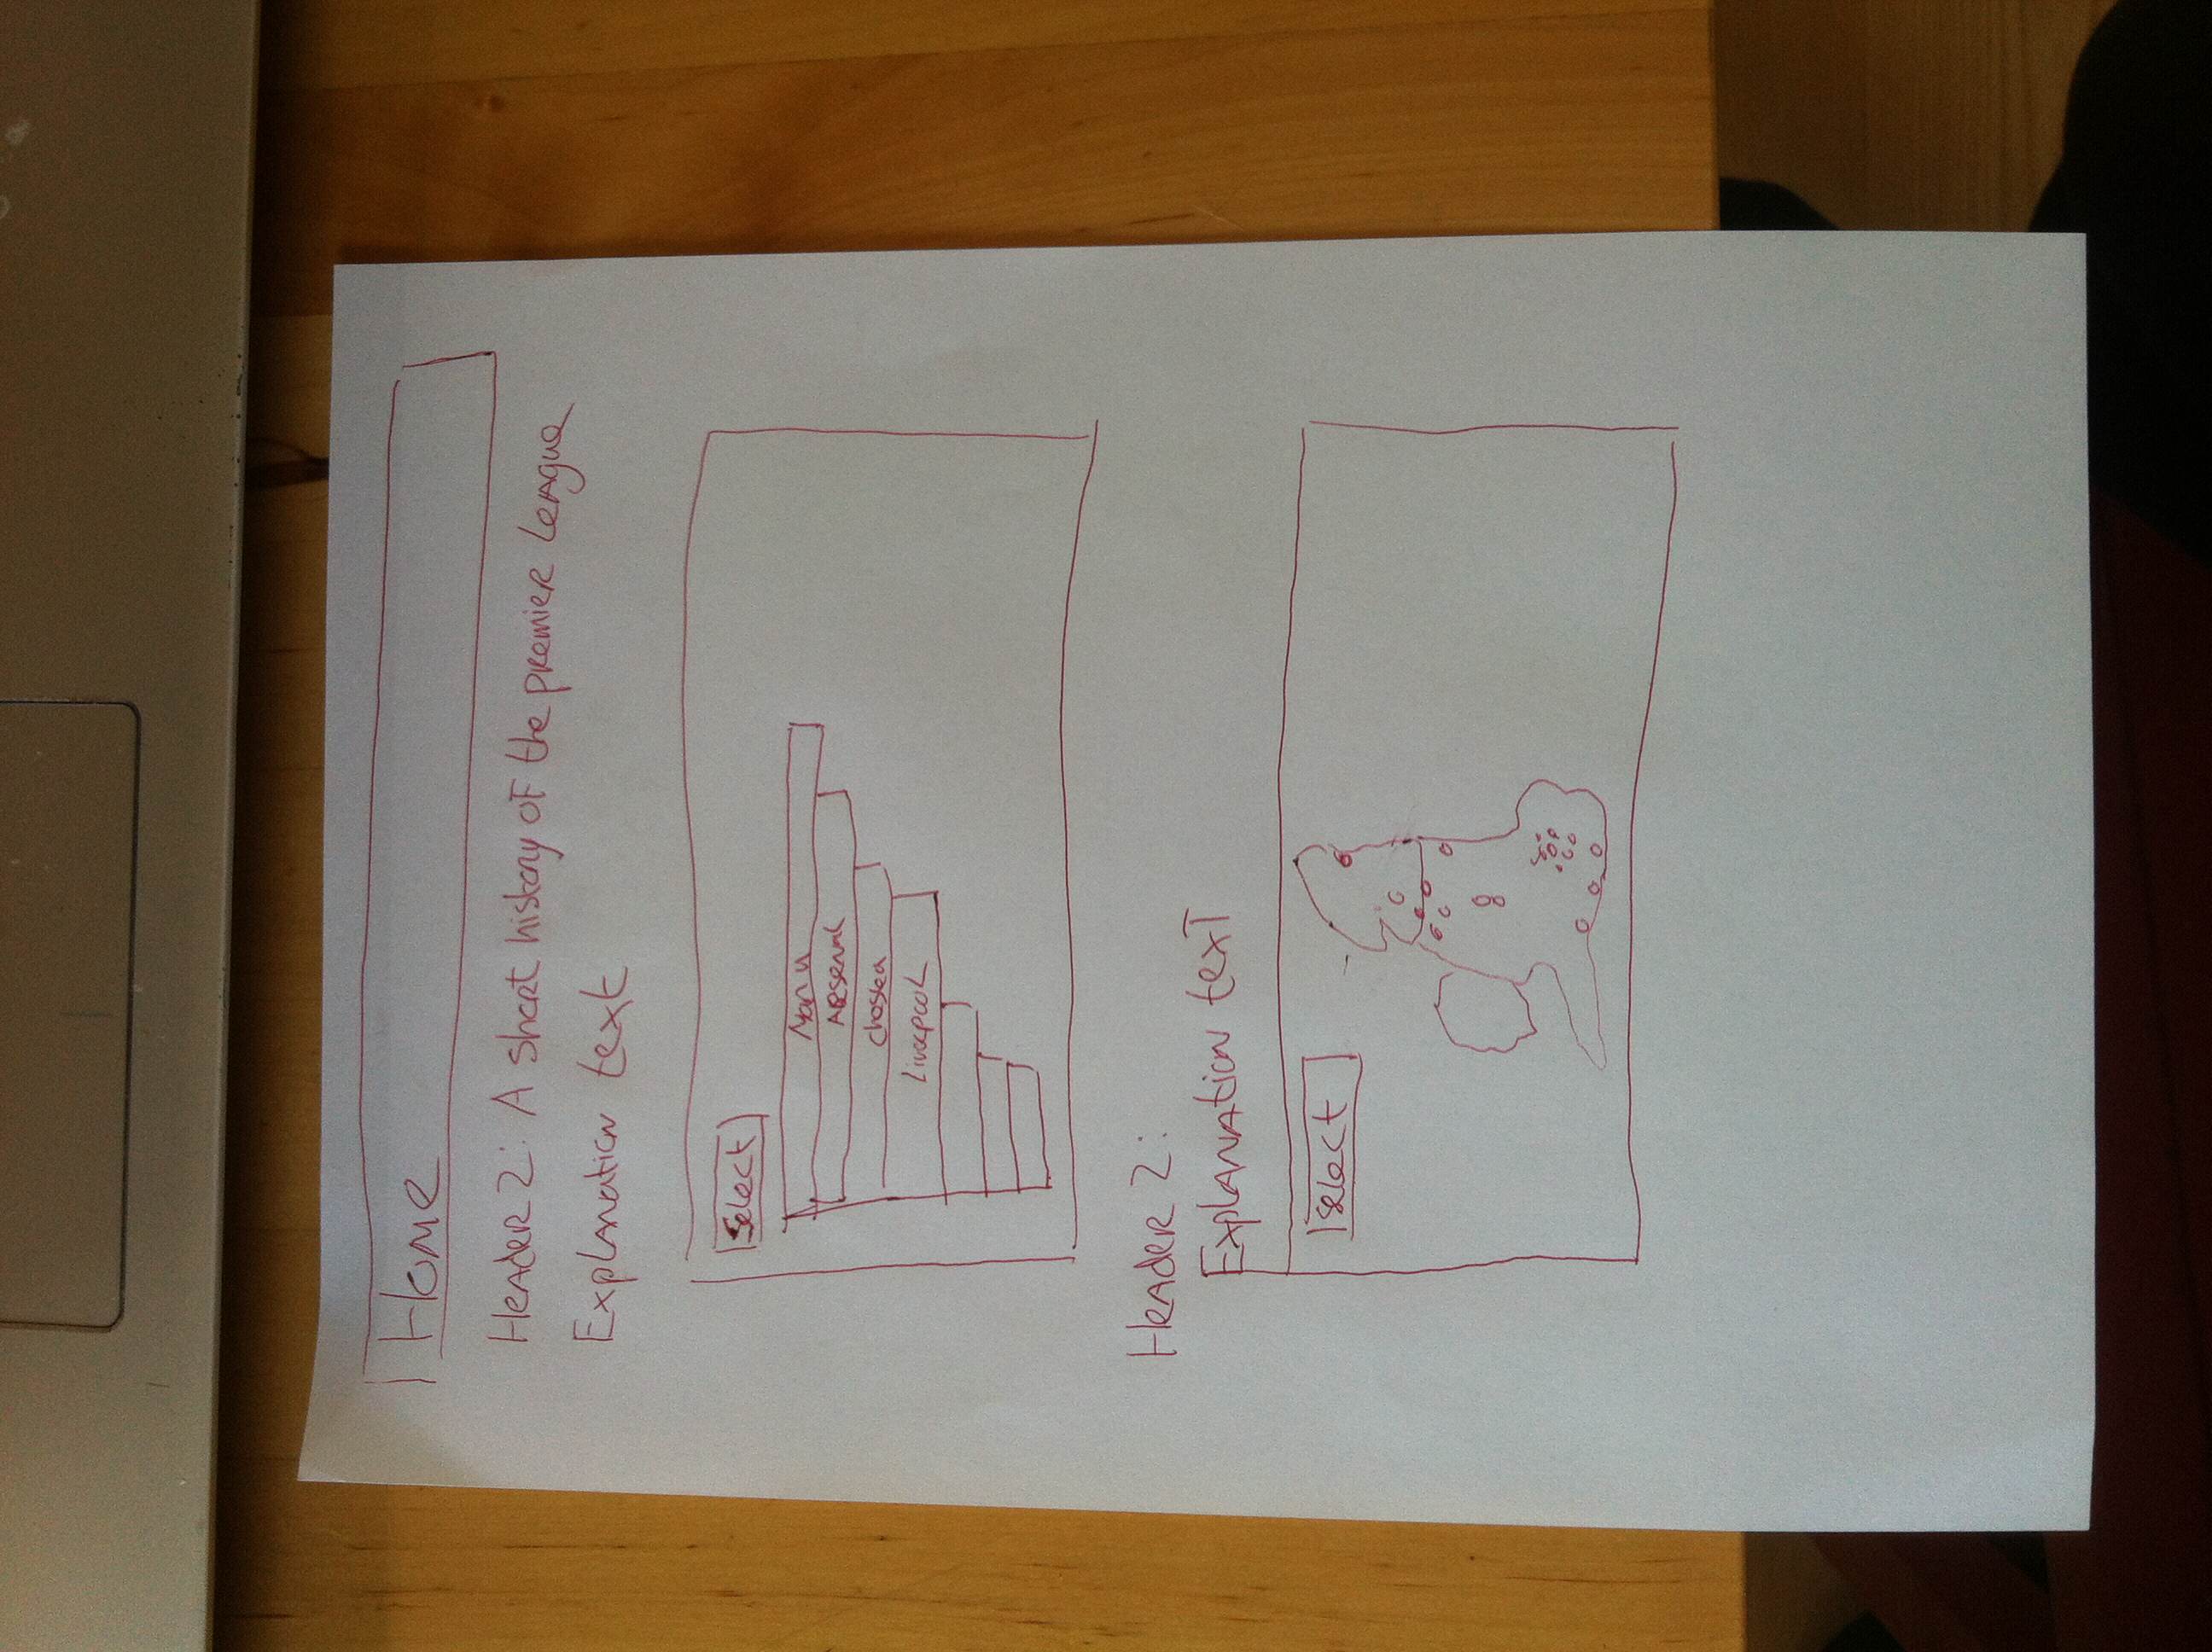 Home
Header 2: A short history of the premier league
Explanation text
Select
Man u
Arsenal
Chelsea
Liverpool
Header 2:
Explanation text
select